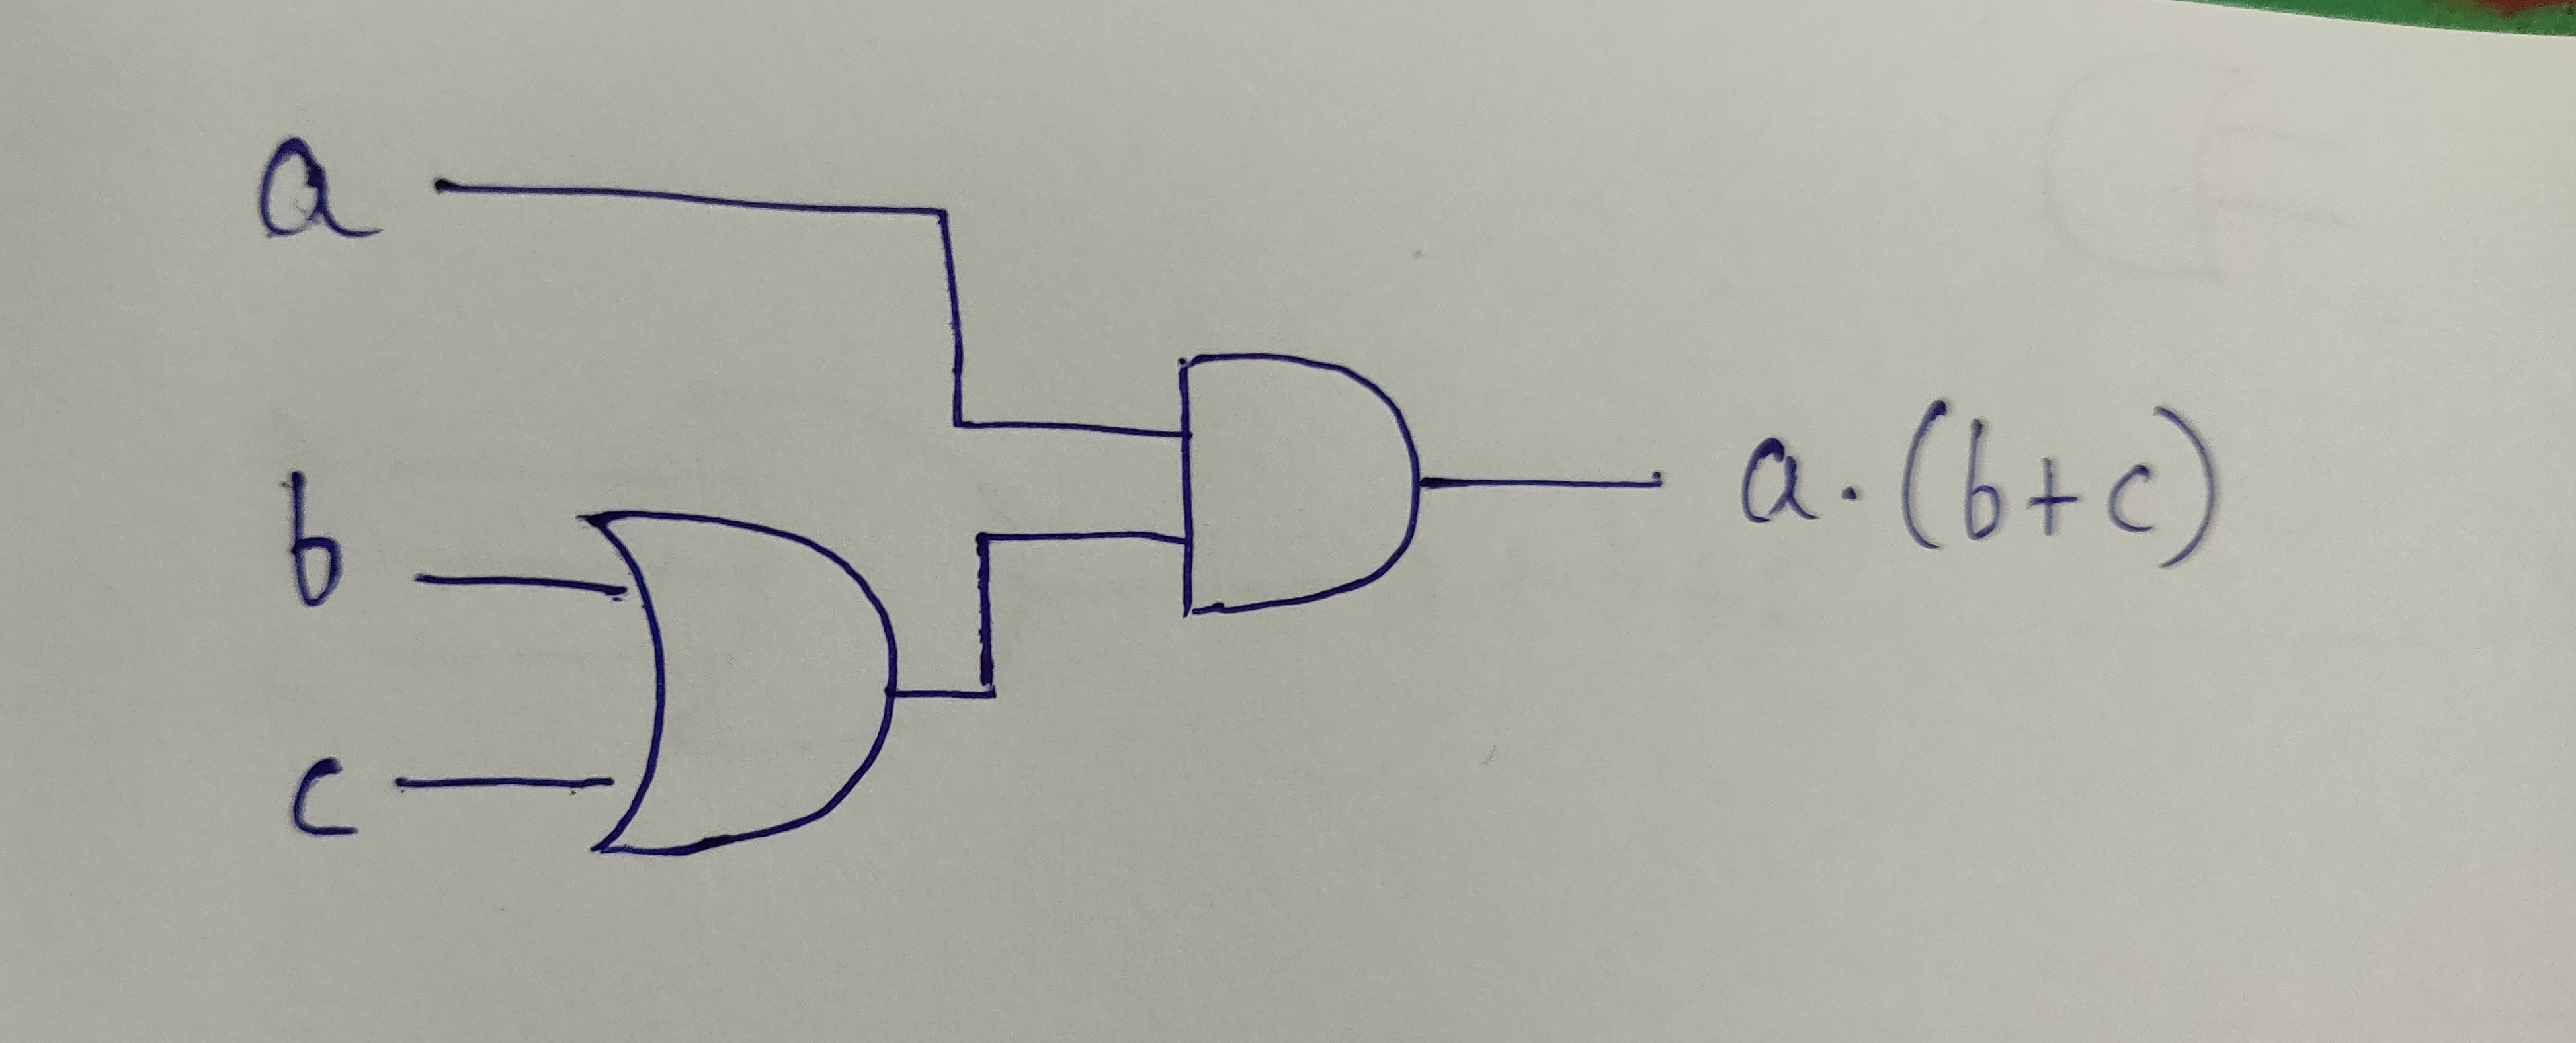 a
b
c
a. (b+c)